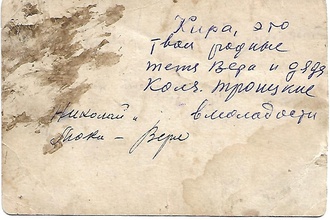 Кира, это
твои родные
тётя Вера и дядя
Коля. Троицкие
в молодости
Николай и
Вера